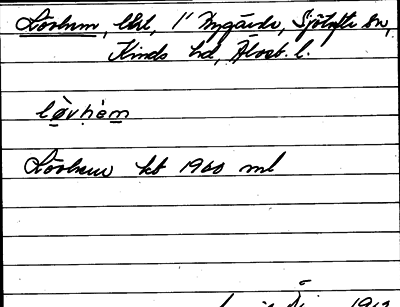 Lövhem, lht, 1' Nygårde, Sjötofte sn,
Kinds hd, Älvsb. l.
lövhem
Lövhem kb 1960 ml
1912